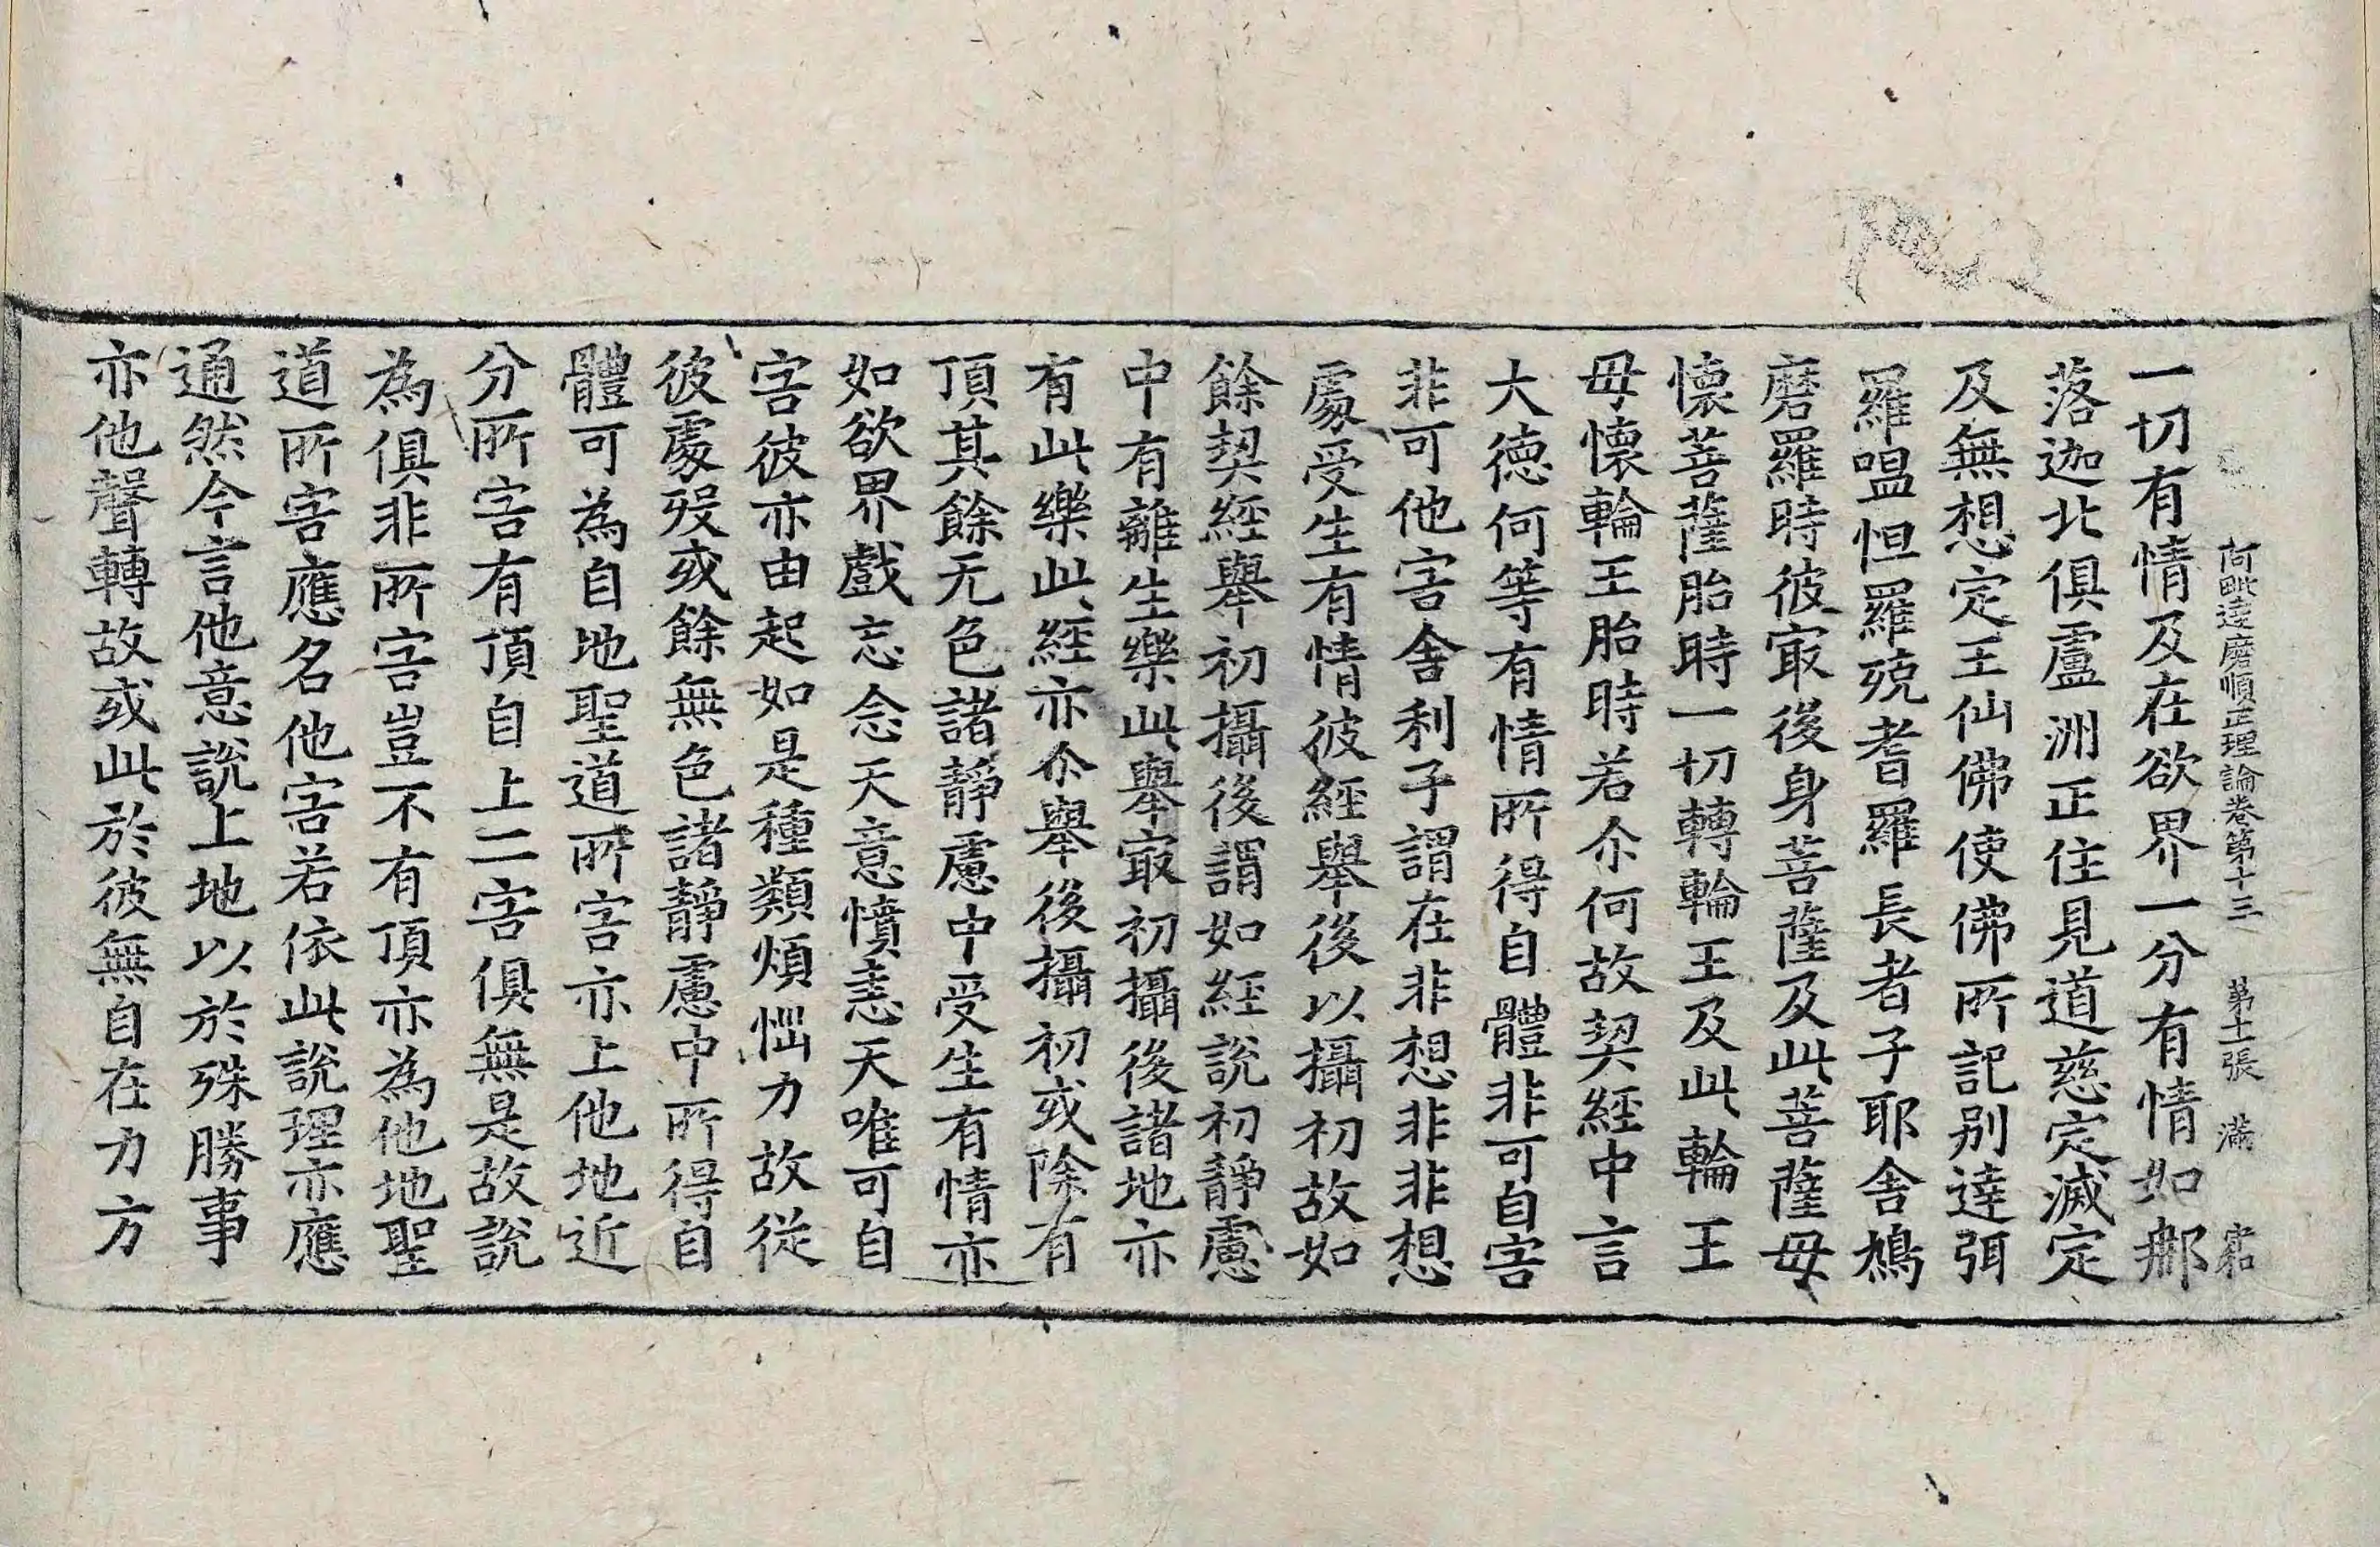 阿毗達磨順正理論卷第十三　第十二張　滿　宲
一切有情及在欲界一分有情如那
落迦北俱盧洲正住見道慈定滅定
及無想定王仙佛使佛所記別達弭
羅嗢怛羅殑耆羅長者子耶舍鳩
磨羅時彼㝡後身菩薩及此菩薩母
懷菩薩胎時一切轉輪王及此輪王
母懷輪王胎時若尒何故契經中言
大德何等有情所得自體非可自害
非可他害舍利子謂在非想非非想
處受生有情彼經舉後以攝初故如
餘契經舉初攝後謂如經說初靜慮
中有離生樂此舉㝡初攝後諸地亦
有此樂此經亦尒舉後攝初或除有
頂其餘无色諸靜慮中受生有情亦
如欲界戲忘念天意憤恚天唯可自
害彼亦由起如是種類煩惱力故從
彼處歿或餘無色諸靜慮中所得自
體可為自地聖道所害亦上他地近
分所害有頂自上二害俱無是故說
為俱非所害豈不有頂亦為他地聖
道所害應名他害若依此說理亦應
通然今言他意說上地以於殊勝事
亦他聲轉故或此於彼無自在力方